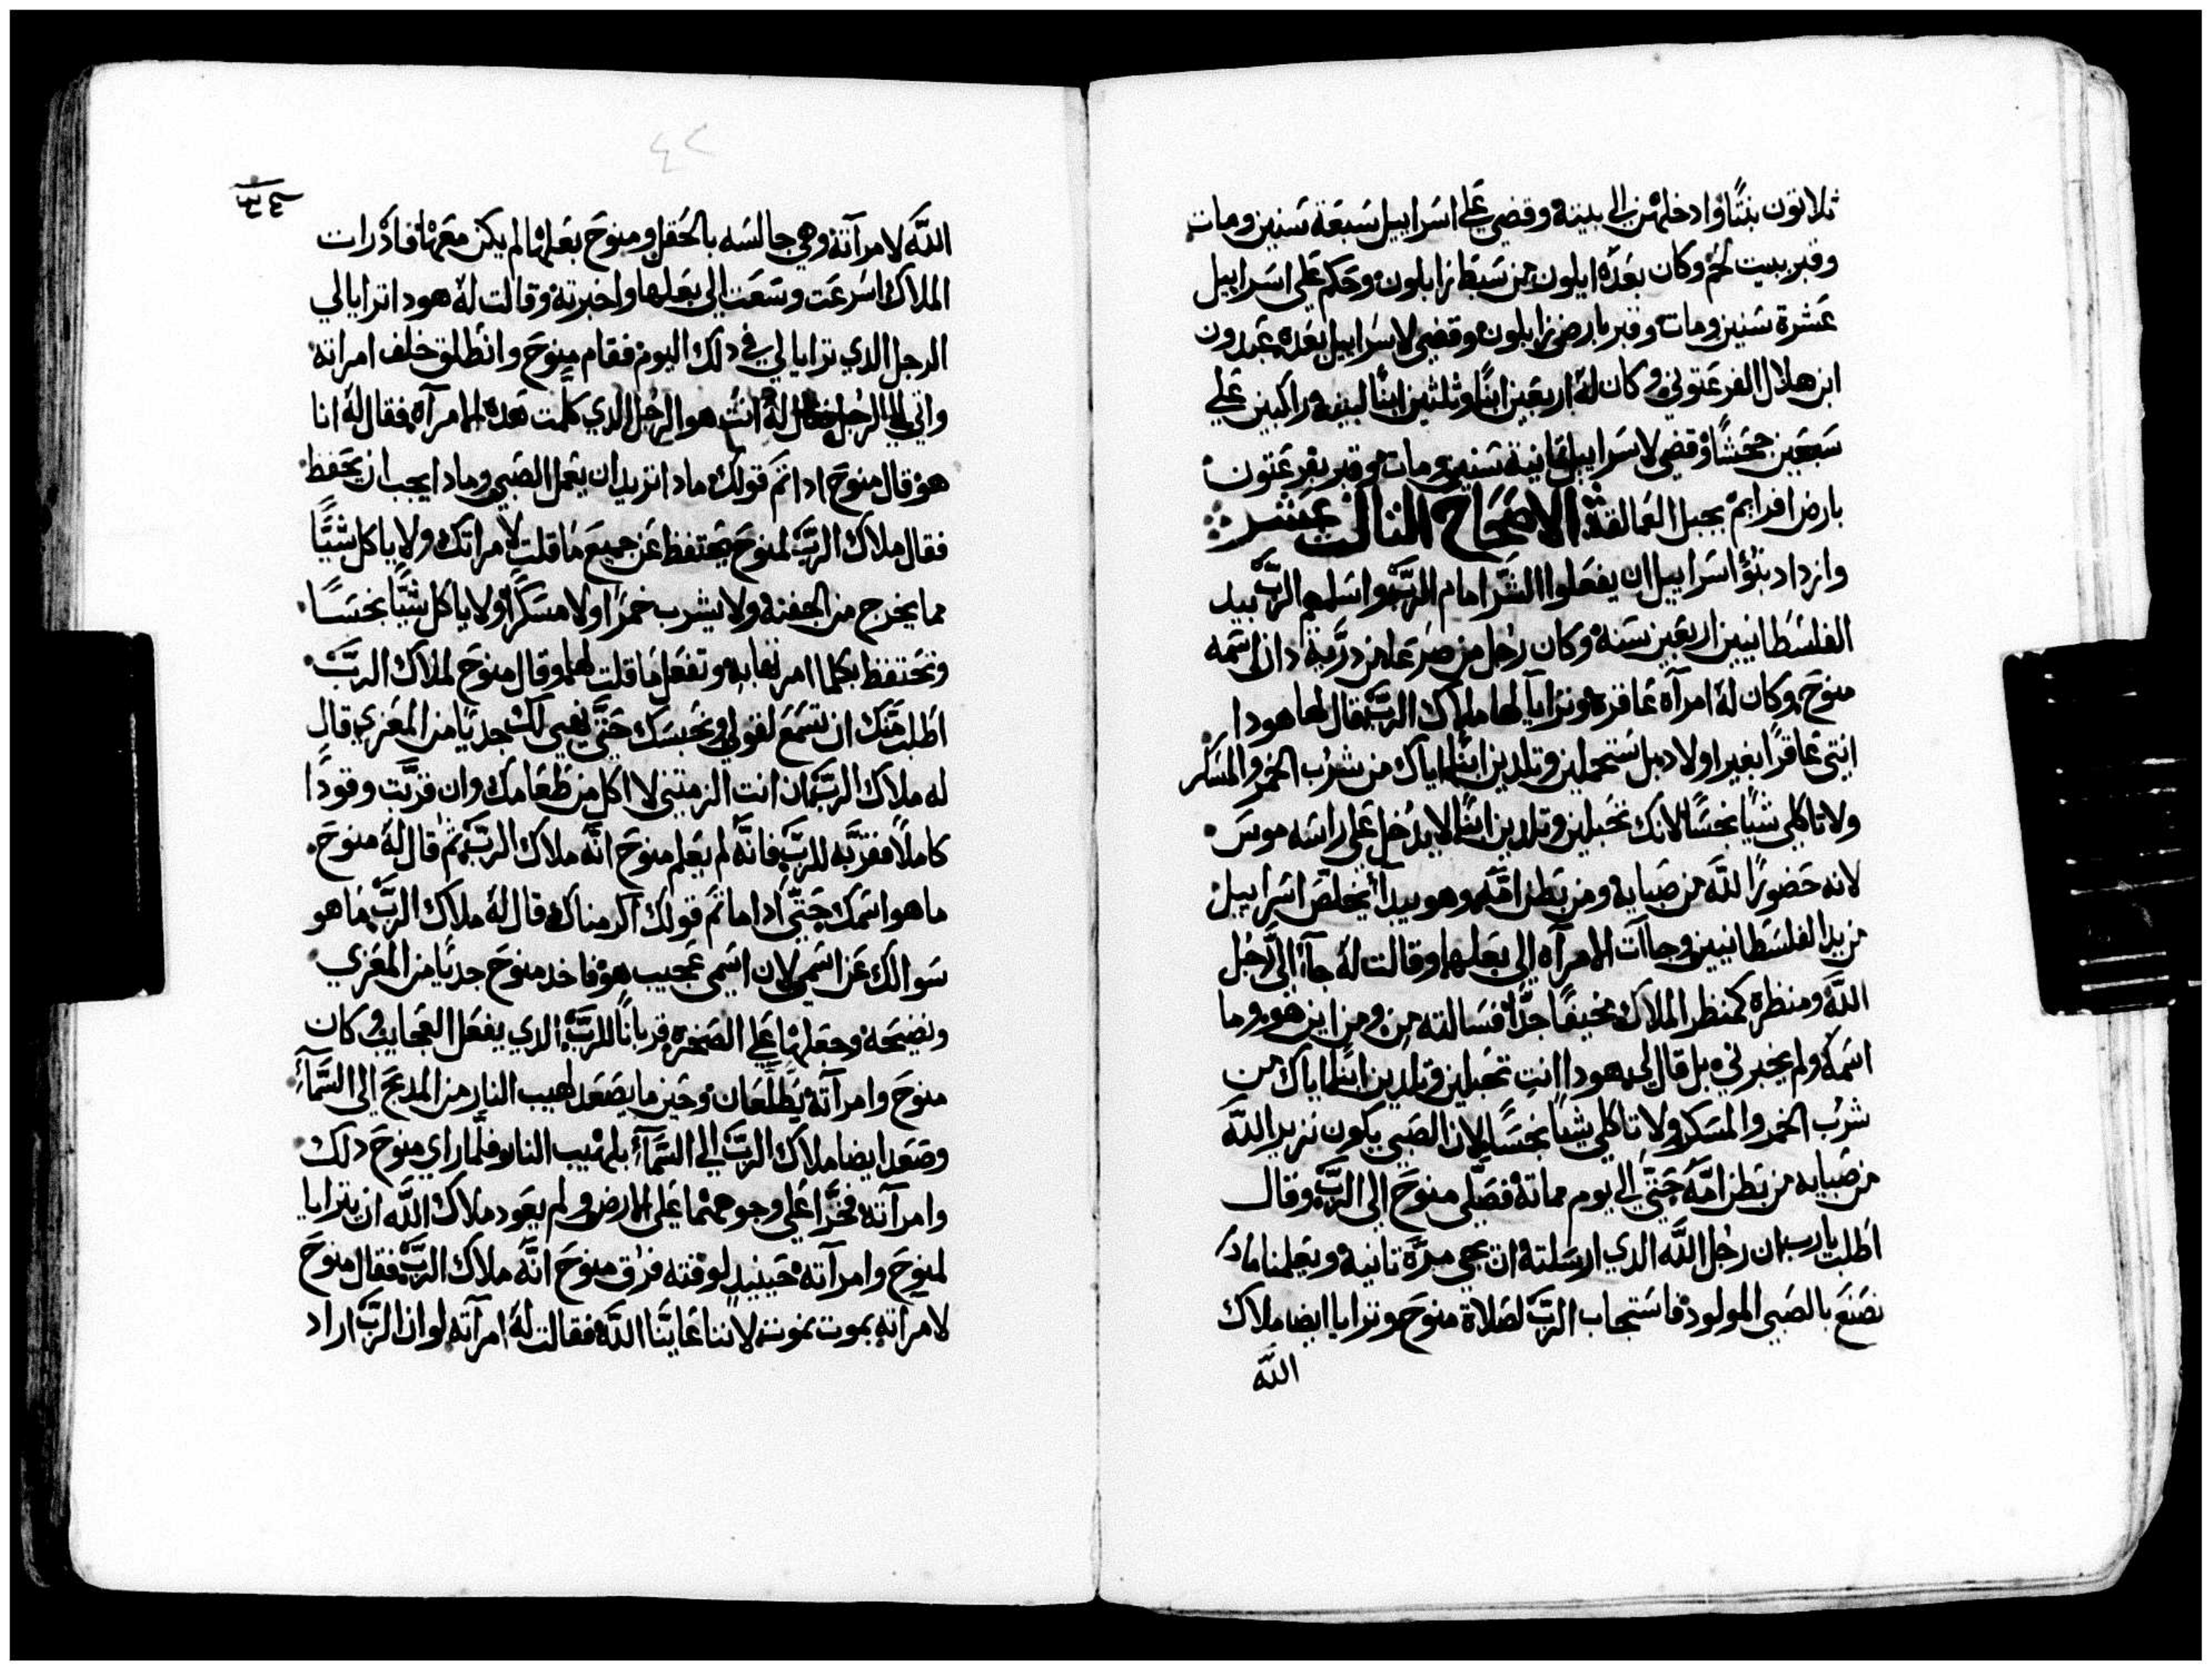 ثلاثون بنتًا وادخلهن الي بيته وقضي علي اسراييل سبعة سنين ومات
وقبر ببيت لحم وكان بعده ايلون من سبط زابلون وحكم علي اسراييل
عشرة سنين ومات وقبر بارض زابلون وقضي لاسراييل بعده عبدون
ابن هلال الفرعتوني وكان له اربعين ابنًا وثلثين ابنًا لبنيه راكبين علي
سبعين جحشًا وقضي لاسراييل تمانية سنين ومات وقبر بفرعتون
بارض افرايم بجبل العمالقة الاصحاح التالت عشر
وازداد بنو اسراييل ان يفعلوا الشر امام الرب واسلمهم الرب بيد
الفلسطانيين اربعين سنة وكان رجل من صرعا من درية دان اسمه
منوح وكان له امرآة عاقره وترايا لها ملاك الرب فقال لها هودا
انتي عاقرًا بغير اولاد بل ستحبلين وتلدين ابنًا اياك من شرب الخمر والمسكر
ولا تاكلي شيًا نجسًا لانك تحبلين وتلدين ابنًا لا يدخل علي راسه موس
لانه حضورًا للّه من صبايه ومن بطن امه وهو يبدا يخلص اسراييل
من يد الفلسطانيين وجاآت الامرآه الي بعلها وقالت له جآ الي رجل
اللّه ومنظره كمنظر الملاك مخيفًا جدًا فسالته من ومن اين هو وما
اسمه ولم يخبرني بل قال لي هودا انت تحبلين وتلدين ابنًا اياك من
شرب الخمر والمسكر ولا تاكلي شيًا نجسًا لان الصبي يكون نزير اللّه
من صبايه من بطن امه حتي الي يوم مماته فصلي منوح الي الرب وقال
اطلب يارب ان رجل اللّه الدي ارسلته ان يجي مرة تانية ويعلمنا مادا
نصنع بالصبي المولود فاستجاب الرب لصلاة منوح وترايا ايضا ملاك
اللّه
٤٢
اللّه لامرآته وهي جالسه بالحقل ومنوح بعلها لم يكن معها فاد رات
الملاك اسرعت وسعت الي بعلها واخبرته وقالت له هودا ترايا لي
الرجل الدي ترايا لي في دلك اليوم فقام منوح وانطلق خلف امراته
واتي الي الرجل فقال له انت هو الرجل الدي كلمت هده الامرآه فقال له انا
هو قال منوح ادا تم قولك مادا تريد ان يعمل الصبي ومادا يجب ان يحفظ
فقال ملاك الرب لمنوح يحتفظ عن جميع ما قلت لامراتك ولا ياكل شيًّا
مما يخرج من الجفنه ولا يشرب خمرًا ولا مسكرًا ولا ياكل شيًّا نجسًا
وتحتفظ بكلما امرتها به وتفعل ما قلت لها وقال منوح لملاك الرب
اطلب منك ان تسمع لقولي ونحبسك حتي نهيي لك جديًا من المعزي قال
له ملاك الرب ان انت الزمتني لا اكل من طعامك وان قربت وقودًا
كاملًا فقربه للرب فانه لم يعلم منوح انه ملاك الرب ثم قال له منوح
ما هو اسمك حتي ادا ما تم قولك اكرمناك قال له ملاك الرب ما هو
سوالك عن اسمي لان اسمي عجيب هو فاخد منوح جديًا من المعزي
ونضيحه وجعلها علي الصخره قربانًا للرب الدي يفعل العجايب وكان
منوح وامرآته يطلعان وحين ما يصعد لهيب النار من المدبح الي السمآء
وصعد ايضا ملاك الرب الي السمآء بلهيب النار فلما راي منوح دلك
وامرآته فخرا علي وجوههما علي الارض ولم يعود ملاك اللّه ان يترايا
لمنوح وامرآته حينيد لوقته فرق منوح انه ملاك الرب فقال منوح
لامراته بموت نموت لاننا عاينا اللّه فقالت له امرآته لو ان الرب اراد